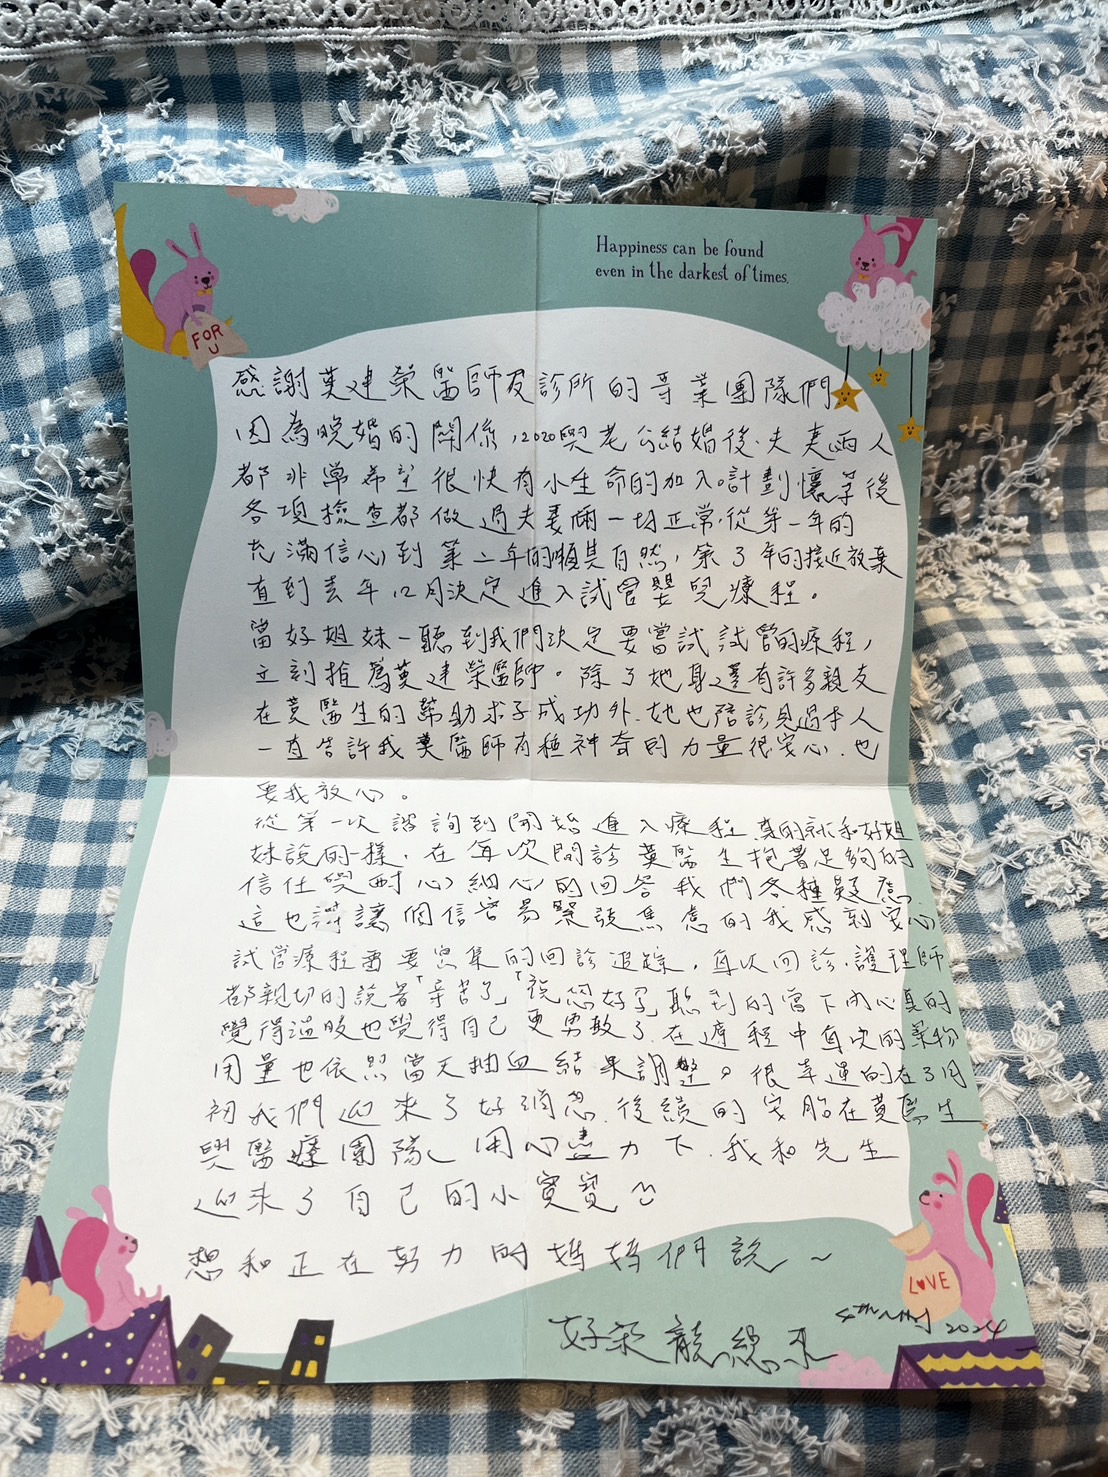 Happiness can be found
even in the darkest of times.
FOR
U
感謝黃建榮醫師及診所的專業團隊們
因為晚婚的關係,2020與老公結婚後.夫妻兩人
都非常希望很快有小生命的加入。計劃懷孕後
各項檢查都做過夫妻倆一切正常.從第一年的
充滿信心到第二年的順其自然,第3年的接近放棄
直到去年12月決定進入試管嬰兒療程。
當好姐妹一聽到我們決定要嘗試試管的療程,
立刻推薦黃建榮醫師。除了她身邊有許多親友
在黃醫生的幫助求子成功外.她也陪診見過本人
一直告訴我黃醫師有種神奇的力量很安心.也
要我放心。
從第一次諮詢到開始進入療程.真的就和好姐
妹說的一樣.在每次問診黃醫生抱著足夠的
信任與耐心細心的回答我們各種疑慮.
這也讓個信容易緊張焦慮的我感到安心
試管療程需要密集的回診追蹤.每次回診.護理師
都親切的說著「辛苦了」「祝您好孕」聽到的當下內心真的
覺得溫暖也覺得自己更勇敢了.在療程中每次的藥物
用量也依照當天抽血結果調整。很幸運的在3月
初我們迎來了好消息.後續的安胎在黃醫生
與醫療團隊 用心盡力下.我和先生
迎來了自己的小寶寶
想和正在努力的媽媽們說~
好來龍總來
4th May 2024
LOVE